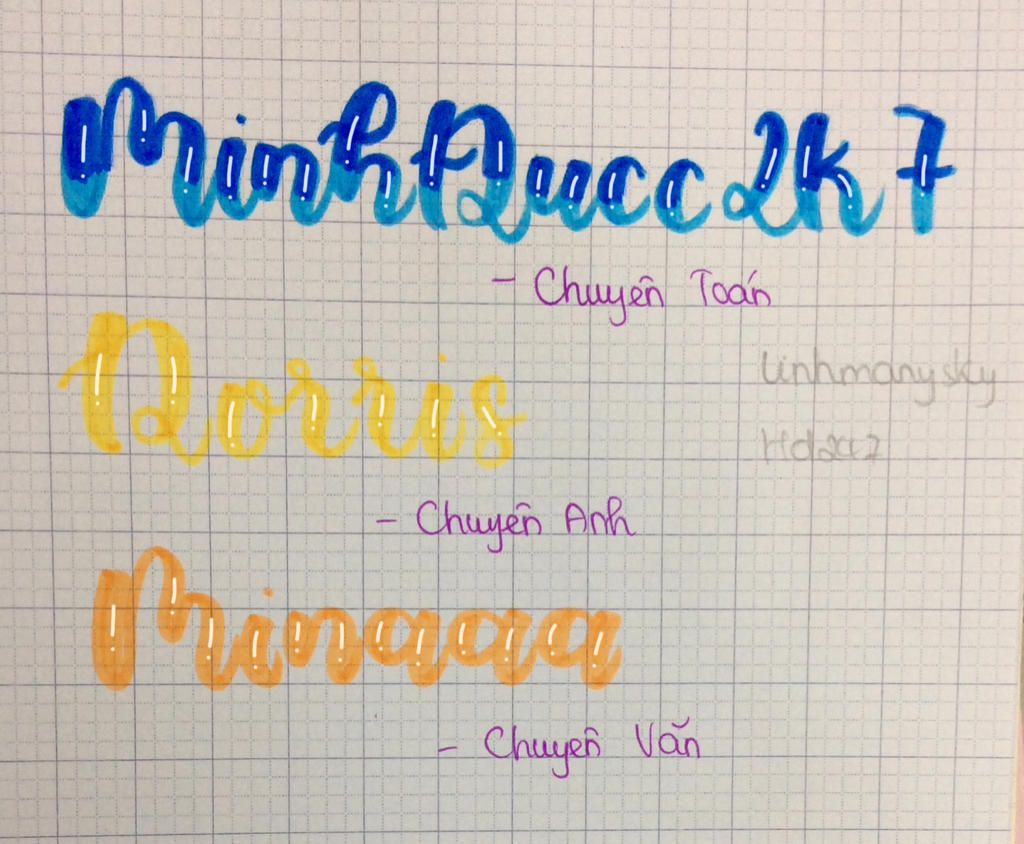 MinhĐucc2k7
- Chuyên Toán
Dorris
linhmanysky
Hd247
- Chuyên Anh
Minaaa
- Chuyên Văn